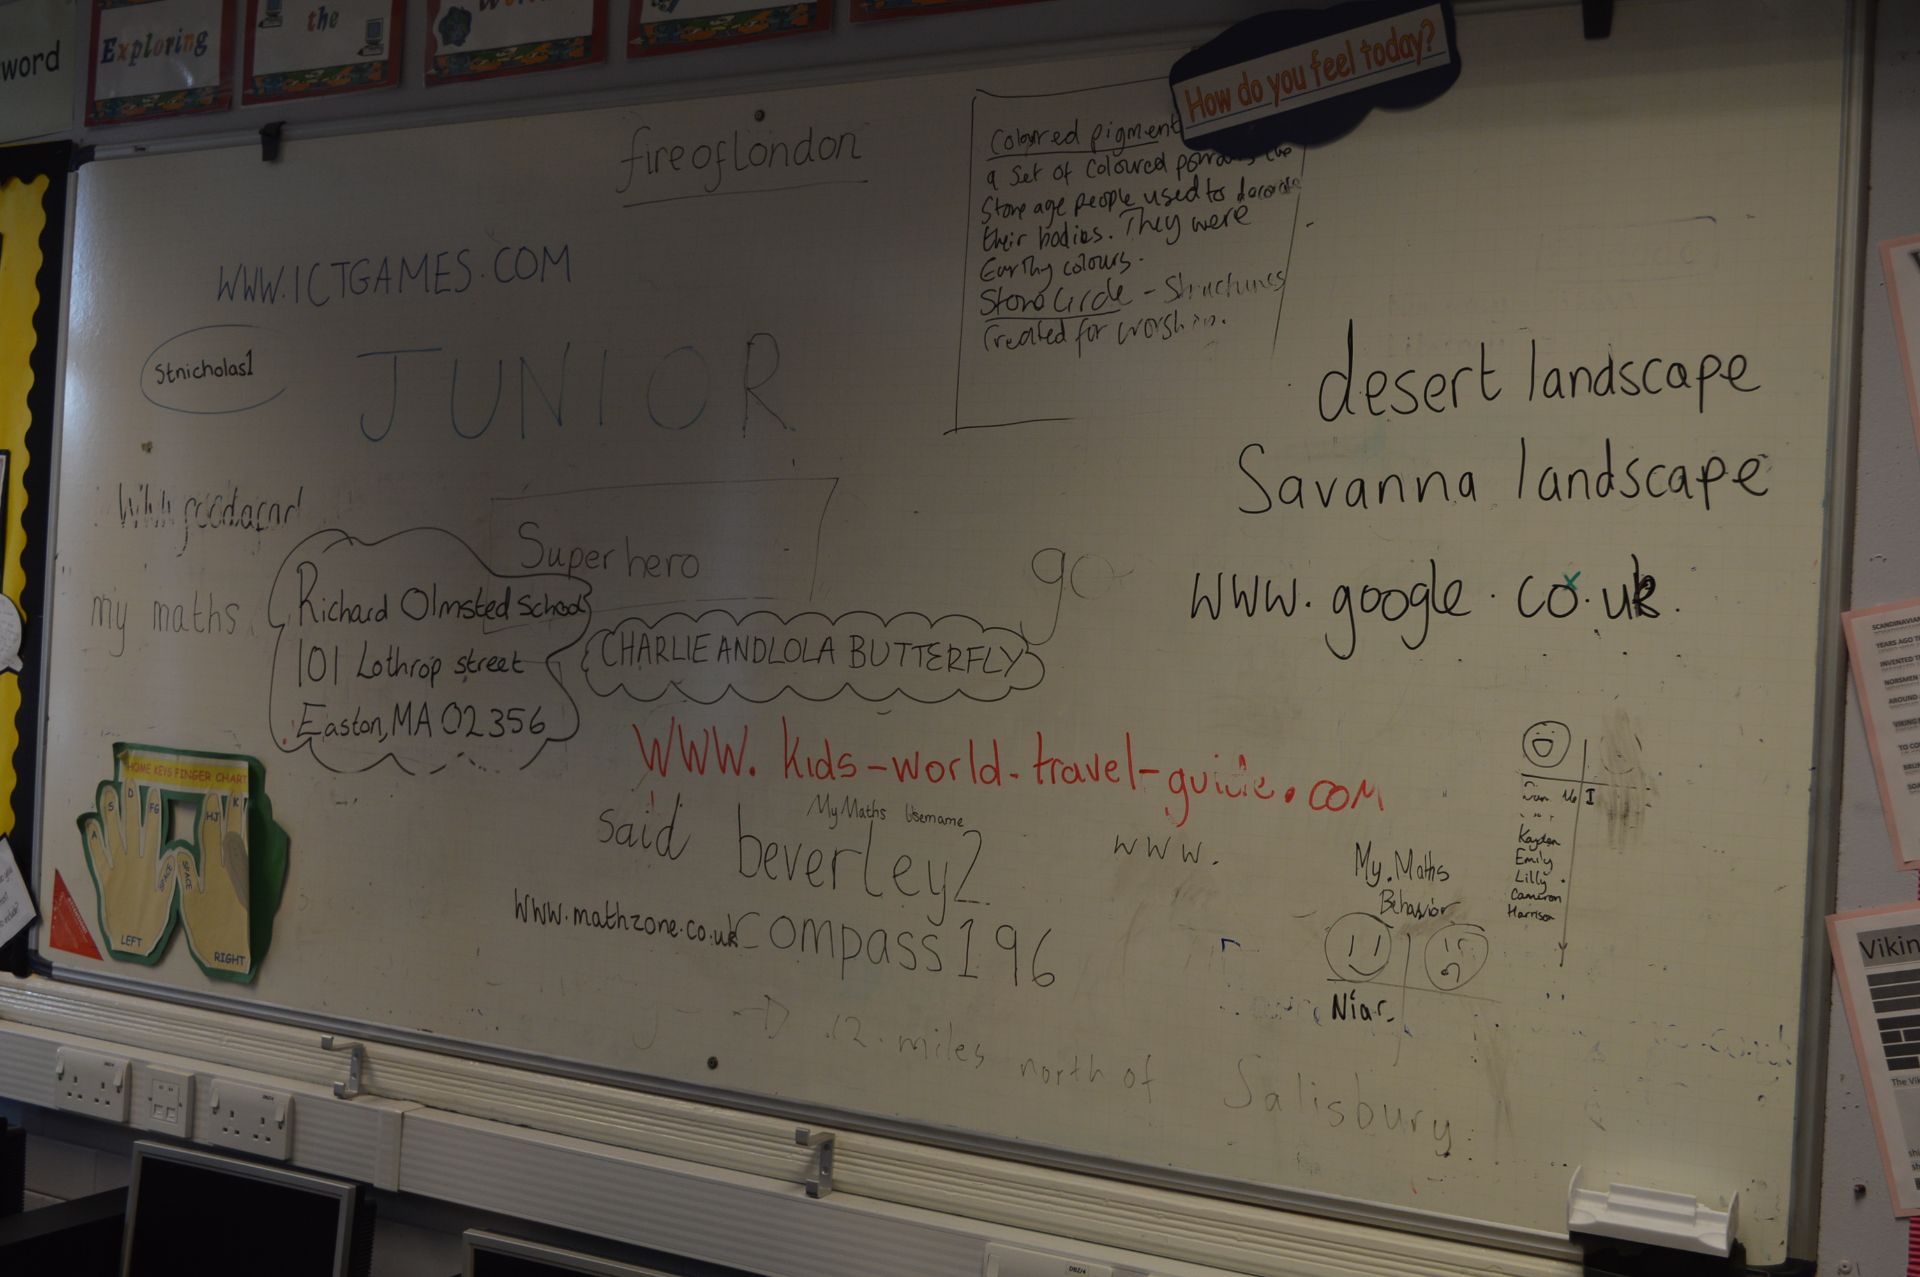 word
Exploring
the
How do you feel today?
fire of London
Coloured pigment
a set of coloured
Stone age people used to decorate
their bodies. They were
Earthy colours.
Stone Circle - Structures
Created for worship.
WWW.ICTGAMES.COM
Stnicholas1
JUNIOR
desert landscape
Savanna landscape
www.google.co.uk
Superhero
my maths
Richard Olmsted School
101 Lothrop street
Easton, MA 02356
go
CHARLIE AND LOLA BUTTERFLY
WWW.kids-world-travel-guide.com
said
My Maths Username
beverley2
www.
www.mathzone.co.uk
compass196
My.Maths
Behavior
Niar
Kayden
Emily
Lilly
Cameron
Harrison
12 miles north of Salisbury
HOME KEYS FINGER CHART
A S D FG HJ K
SPACE SPACE
LEFT RIGHT
SCANDINAVIAN
YEARS AGO
INVENTED
NORSMEN
AROUND
VIKING
The Vik